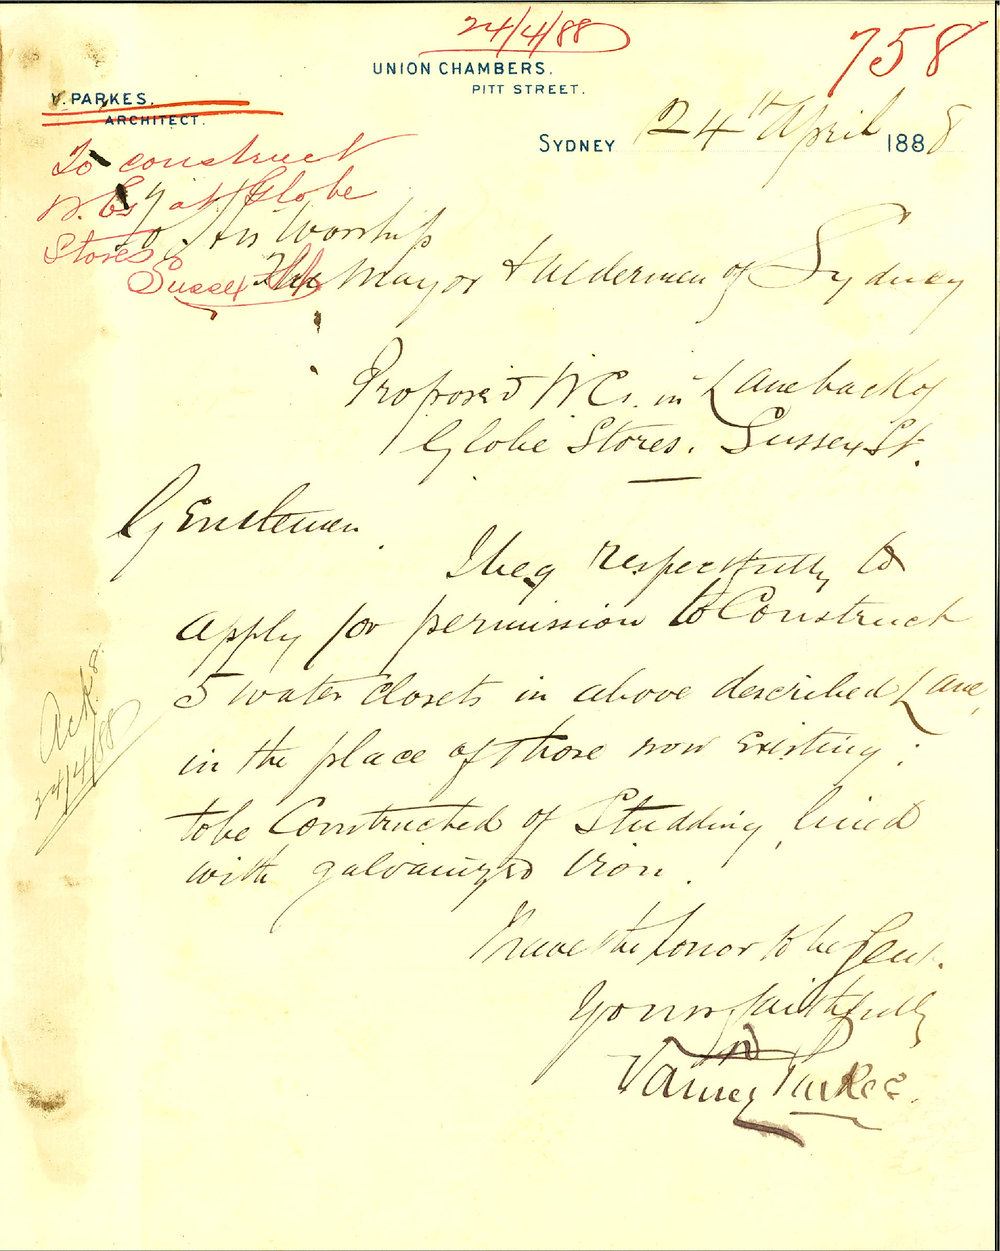 24/4/88
758
UNION CHAMBERS.
PITT STREET.
V. PARKES.
ARCHITECT.
SYDNEY 24th April 1888
To construct
W.Cs at Globe
Stores
Sussex St
To His Worship
The Mayor & Aldermen of Sydney
Proposed W Cs. in Lane back of
Globe Stores. Sussex St.
Gentlemen.
I beg respectfully to
apply for permission to Construct
5 water closets in above described Lane,
in the place of those now Existing:
to be Constructed of Studding, lined
with galvanized iron.
I have the honor to be Gent.
Yours faithfully
Varney Parkes.
Ack.
24/4/88